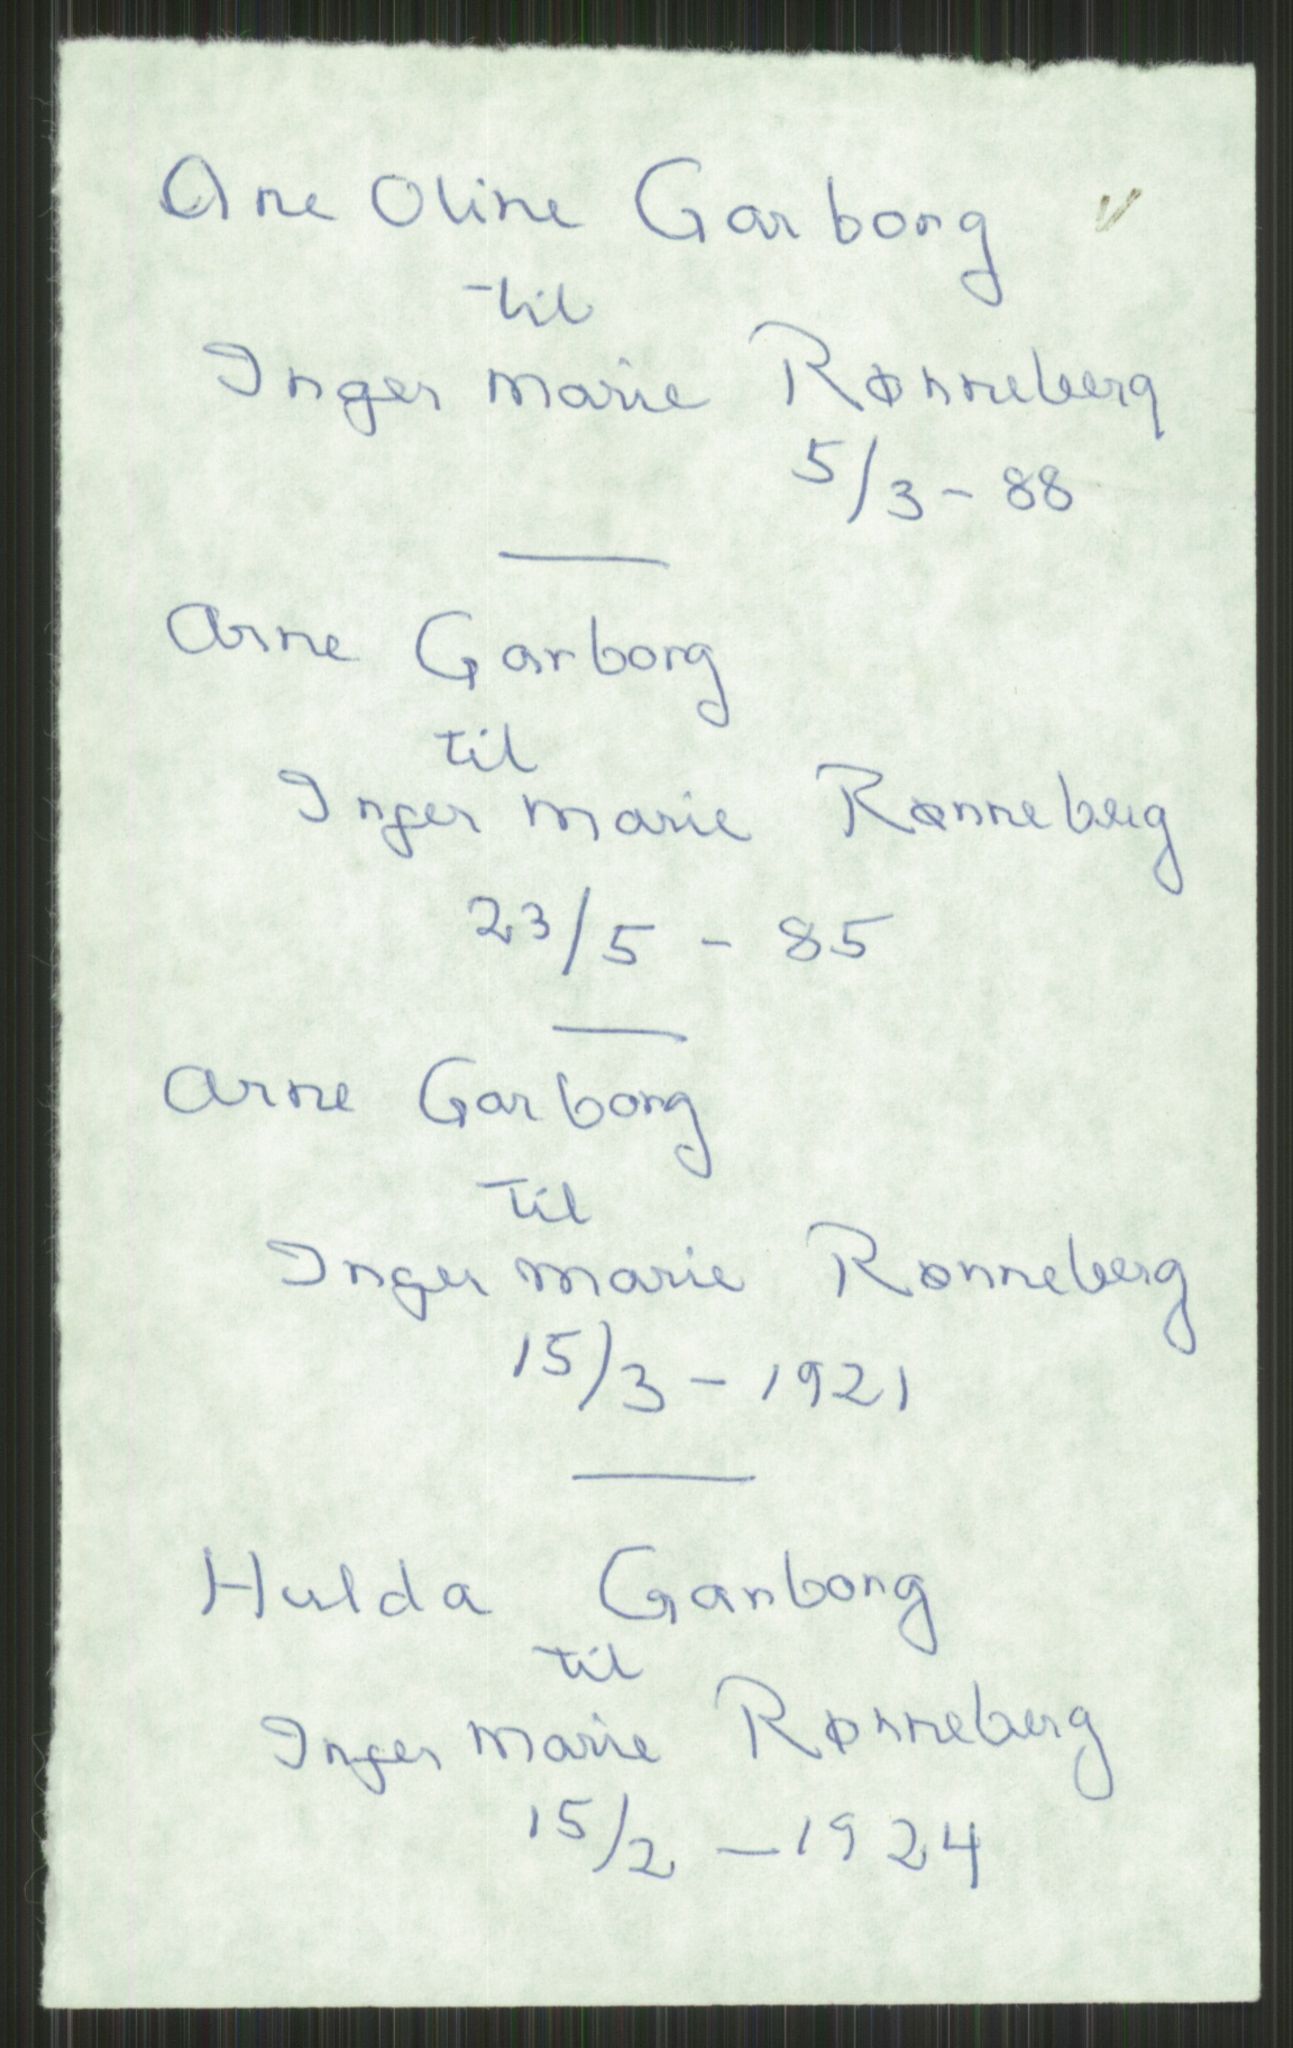 Ane Oline Garborg
til
Inger Marie Rønneberg
5/3 - 88
Arne Garborg
til
Inger Marie Rønneberg
23/5 - 85
Arne Garborg
til
Inger Marie Rønneberg
15/3 - 1921
Hulda Garborg
til
Inger Marie Rønneberg
15/2 - 1924